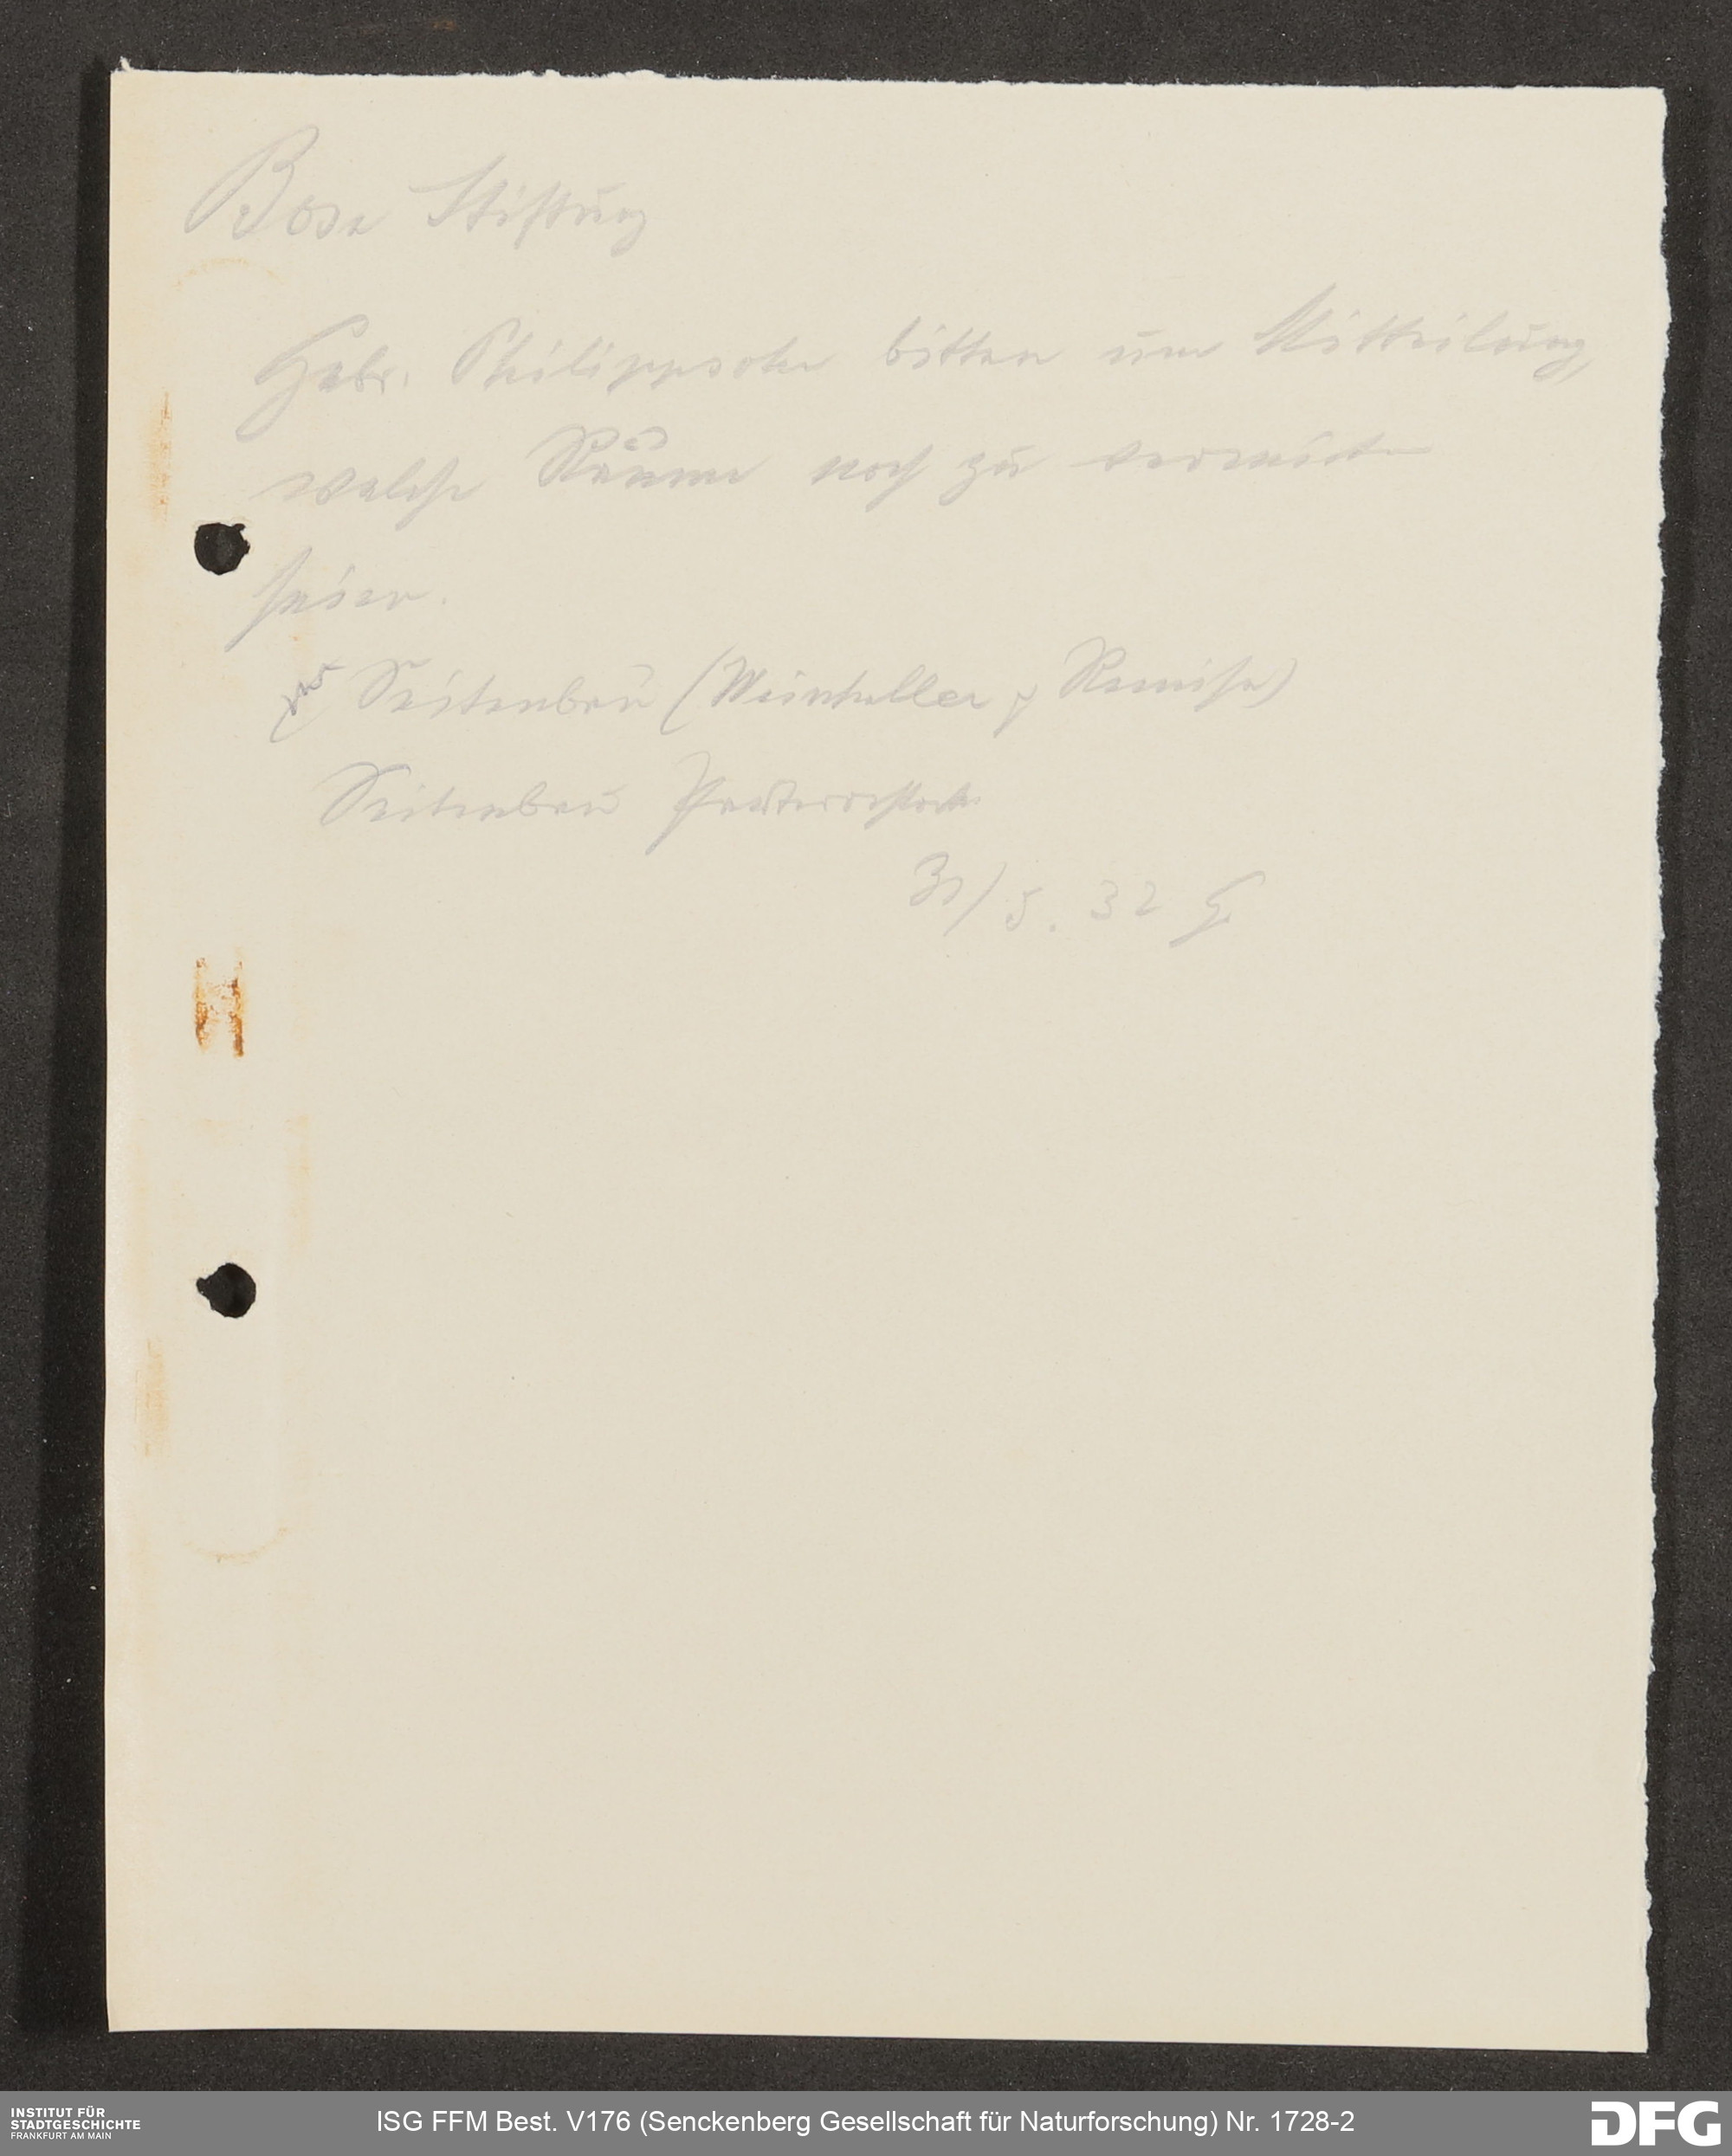 Bose Stiftung
Gebr. Philippsohn bitten um Mitteilung,
welche Räume noch zu vermieten
seien.
Seitenbau (Weinkeller, Remise)
Seitenbau
5. 32
INSTITUT FÜR
STADTGESCHICHTE
FRANKFURT AM MAIN
ISG FFM Best. V176 (Senckenberg Gesellschaft für Naturforschung) Nr. 1728-2
DFG